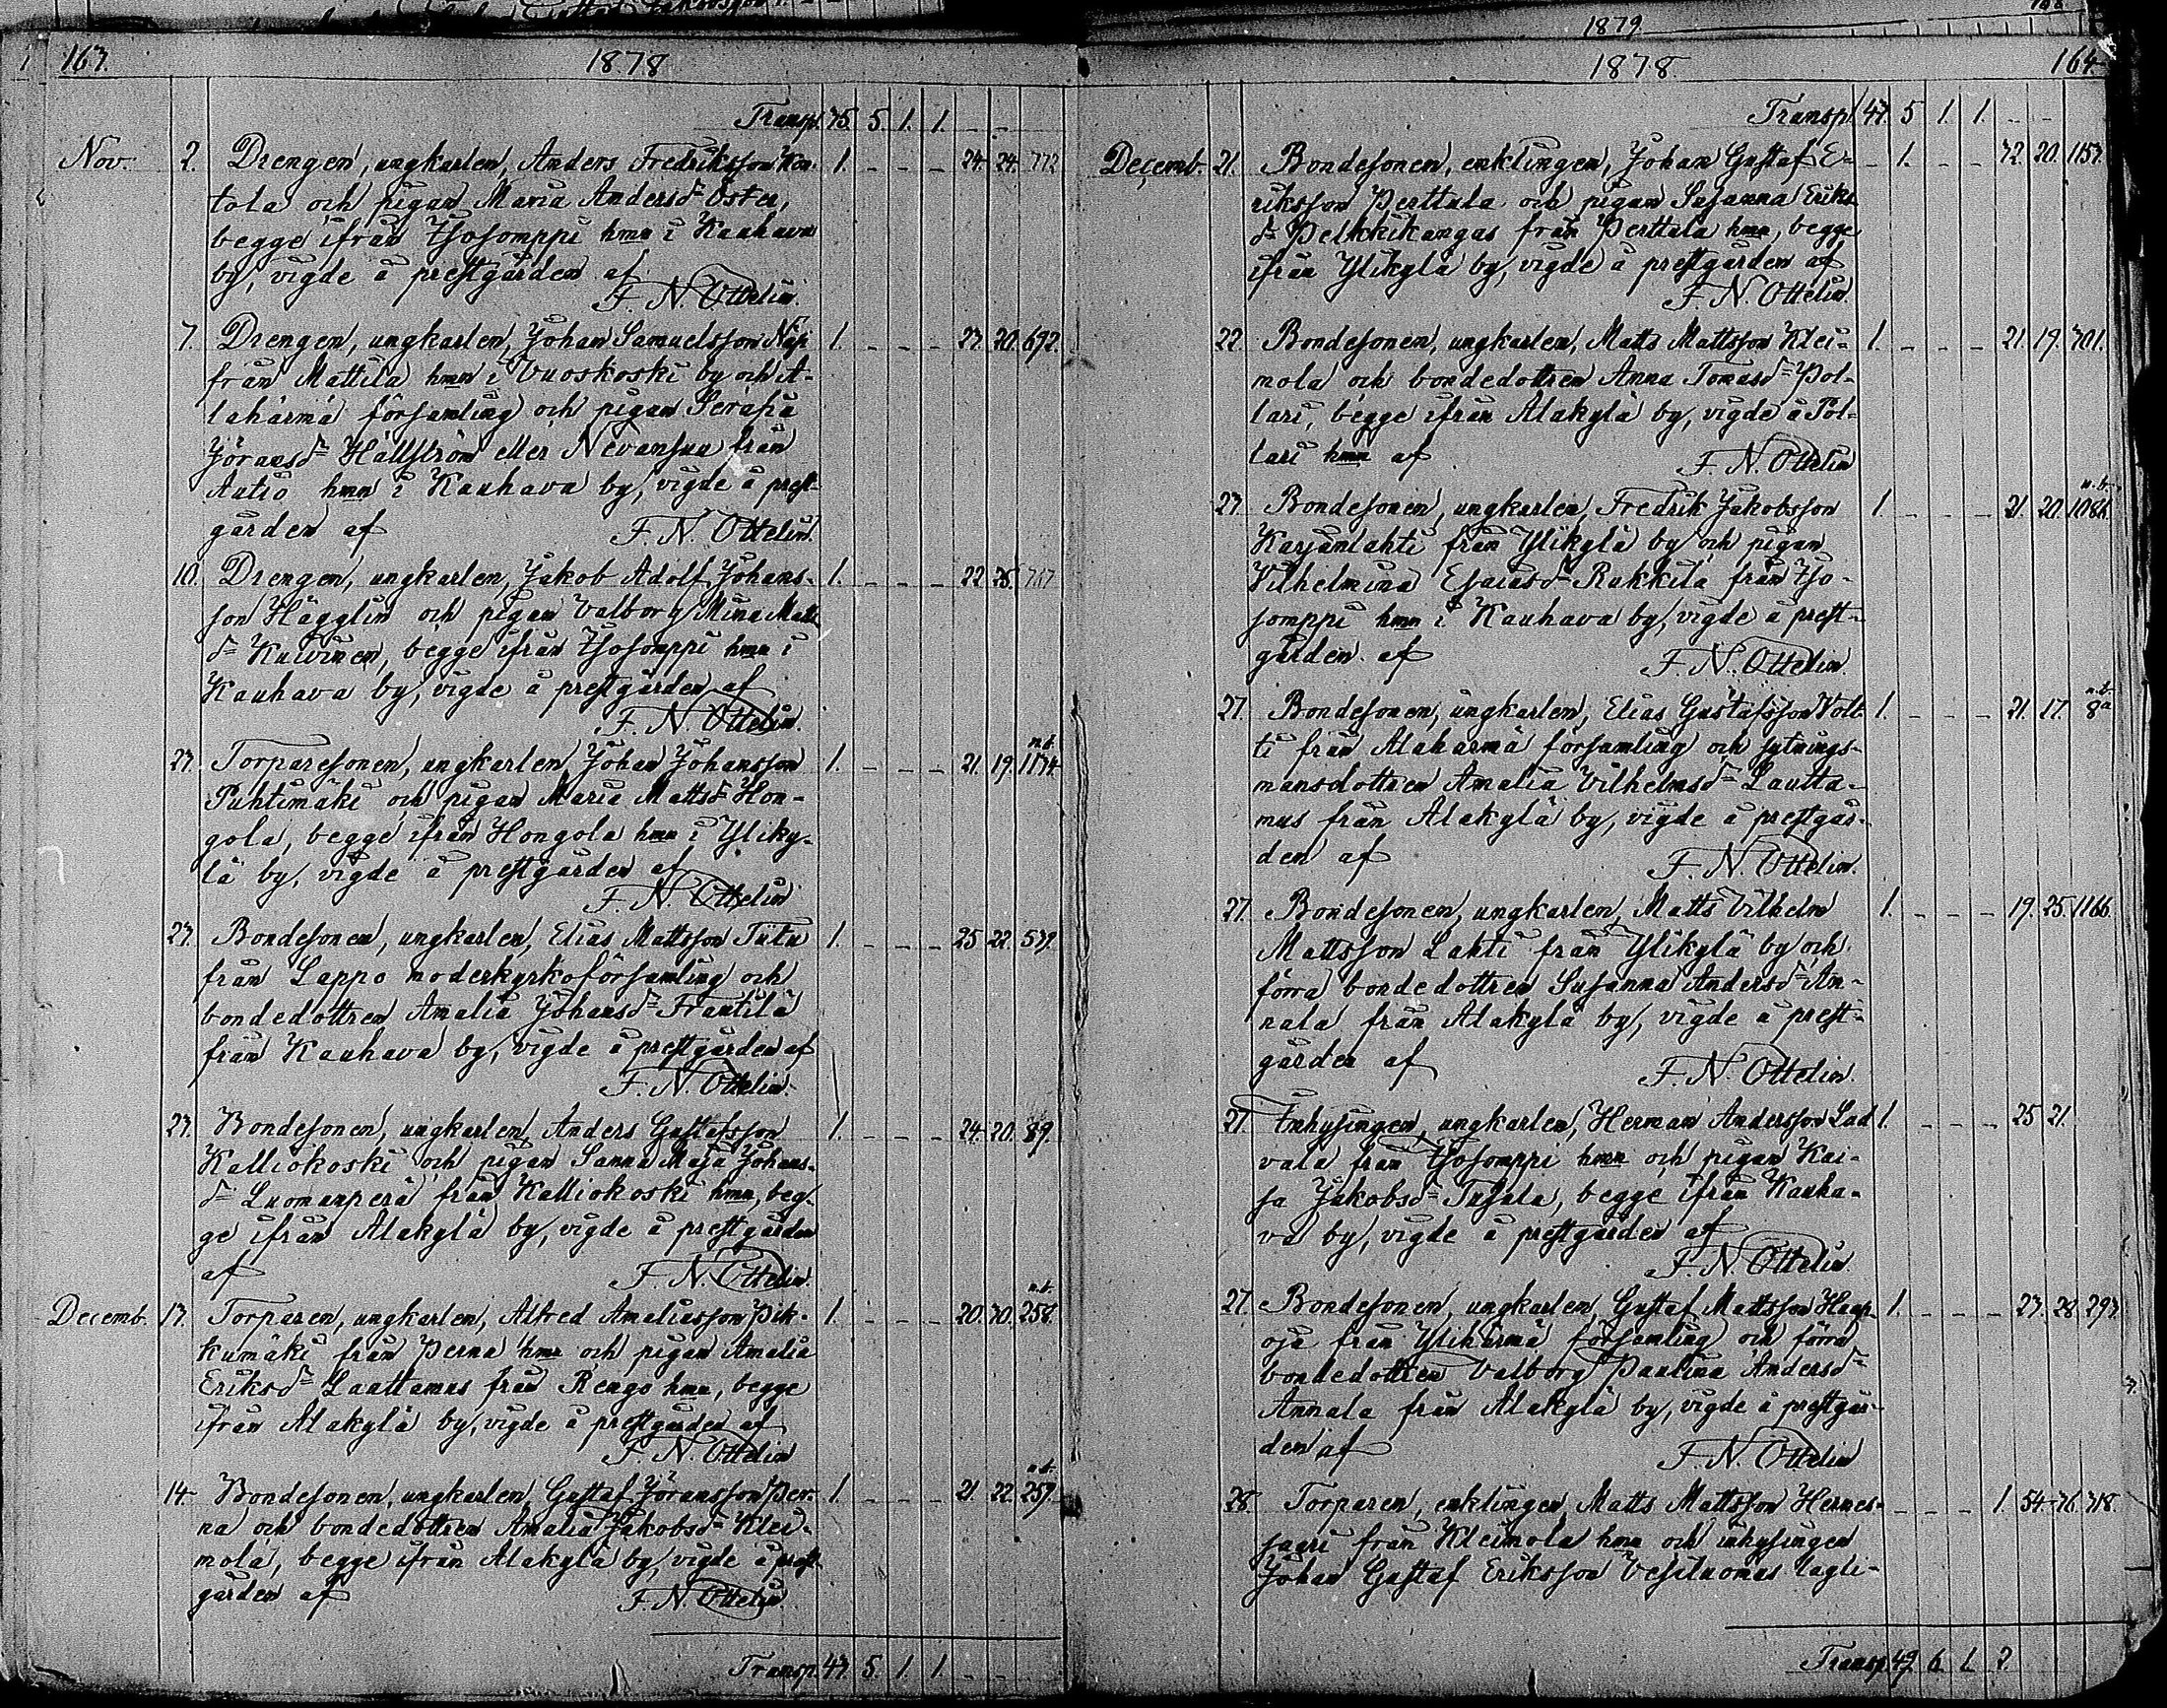 1879.
163. 1878
Transp. 35. 5. 1. 1. - -
Nov. 2. Drengen, ungkarlen, Anders Fredriksson Kon- 1. - - - 24. 24. 772
tola och pigan Maria Andersdr Öster,
begge ifrån Isosomppi hmn i Kauhava
by, vigde å prestgården af
F. N. Ottelin.
7. Drengen, ungkarlen, Johan Samuelsson Näpi 1. - - - 23. 20. 692.
från Mattila hmn i Vuoskoski by och A-
lahärmä församling och pigan Serafia
Jöransdr Hällström eller Nevansuu från
Autio hmn i Kauhava by, vigde å prest-
gården af F. N. Ottelin.
10. Drengen, ungkarlen, Jakob Adolf Johans- 1. - - - 22. 25.
son Hägglin och pigan Valborg Mina Matts
dr Kuivinen, begge ifrån Isosomppi hmn i
Kauhava by, vigde å prestgården af
F. N. Ottelin.
27. Torparesonen, ungkarlen Johan Johansson 1. - - - 21. 19. 1134.
Puhtimäki och pigan Maria Mattsdr Hon-
gola, begge ifrån Hongola hmn i Yliky-
lä by, vigde å prestgården af
F. N. Ottelin
27. Bondesonen, ungkarlen, Elias Mattsson Tutu 1. - - - 25. 22. 539.
från Lappo moderkyrkoförsamling och
bondedottren Amalia Johansdr Frantilä
från Kauhava by, vigde å prestgården af
F. N. Ottelin.
27. Bondesonen, ungkarlen, Anders Gustafsson 1. - - - 24. 20. 89.
Kalliokoski och pigan Sanna Maja Johans-
dr Luomanperä från Kalliokoski hmn, beg-
ge ifrån Alakylä by, vigde å prestgården
af F. N. Ottelin.
Decemb. 13. Torparen, ungkarlen, Alfred Amaliasson Pik- 1. - - - 20. 30. 258.
kumäki från Perna hmn och pigan Amalia
Eriksdr Lauttamus från Rengo hmn, begge
ifrån Alakylä by, vigde å prestgården af
F. N. Ottelin
14. Bondesonen, ungkarlen, Gustaf Jöransson Per- 1. - - - 21. 22. 259.
na och bondedottren Amalia Jakobsdr Klei-
mola, begge ifrån Alakylä by, vigde å prest-
gården af F. N. Ottelin.
Transp. 43. 5. 1. 1. - -
1878. 164
Transp. 43. 5 1. 1. - -
Decemb. 21. Bondesonen, enklingen, Johan Gustaf E- - 1. - - 32. 20. 1153.
riksson Perttula och pigan Susanna Eriks
dr Pelkkikangas från Perttula hmn, begge
ifrån Ylikylä by, vigde å prestgården af
F. N. Ottelin.
22. Bondesonen, ungkarlen, Matts Mattsson Klei- 1. - - - 21. 19. 301.
mola och bondedottren Anna Tomasdr Pol-
lari, begge ifrån Alakylä by, vigde å Pol-
lari hmn af F. N. Ottelin
27. Bondesonen, ungkarlen, Fredrik Jakobsson 1. - - - 21. 20. 1086.
Karjanlahti från Ylikylä by och pigan
Vilhelmina Esaiasdr Rukkila från Iso-
somppi hmn i Kauhava by, vigde å prest-
gården af F. N. Ottelin.
27. Bondesonen, ungkarlen, Elias Gustafsson Volt- 1. - - - 21. 17. 8a
ti från Alahärmä församling och sytnings-
mansdottren Amalia Vilhelmsdr Lautta-
mus från Alakylä by, vigde å prestgår-
den af F. N. Ottelin.
27. Bondesonen, ungkarlen, Matts Vilhelm 1. - - - 19. 25. 1166.
Mattsson Lahti från Ylikylä by och
förra bondedottren Susanna Andersdr An-
nala från Alakylä by, vigde å prest-
gården af F. N. Ottelin.
27. Inhysingen, ungkarlen, Herman Andersson Lad 1. - - - 25 21.
vala från Isosomppi hmn och pigan Kai-
sa Jakobsdr Tusala, begge ifrån Kauha-
va by, vigde å prestgården af
F. N. Ottelin.
27. Bondesonen, ungkarlen, Gustaf Mattsson Haap- 1. - - - 23. 28. 293.
oja från Ylihärmä församling och förra
bondedottren Valborg Paulina Andersdr
Annala från Alakylä by, vigde å prestgår-
den af F. N. Ottelin
28. Torparen, enklingen Matts Mattsson Hernes- - - - 1. 54. 36. 318.
saari från Kleimola hmn och inhysingen
Johan Gustaf Eriksson Vesiluomas lagli-
Transp. 49. 6. 1. 2.